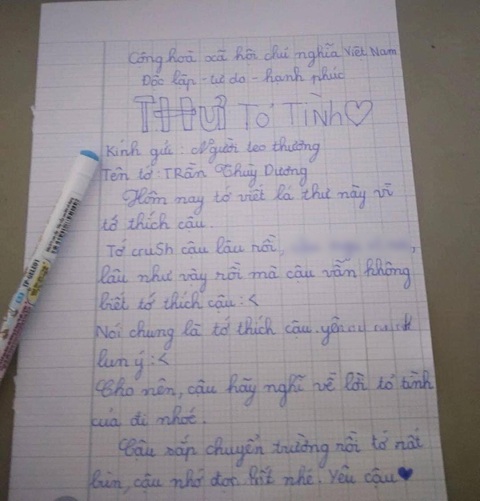 Cộng hoà xã hội chủ nghĩa Việt Nam
Độc lập - tự do - hạnh phúc
THƯ TỎ TÌNH♡
Kính gửi : Người teo thương
Tên tớ : TRần Thùy Dương
Hôm nay tớ viết lá thư này vì
tớ thích cậu.
Tớ cruSh cậu lâu rồi,
lâu như vậy rồi mà cậu vẫn không
biết tớ thích cậu :<
Nói chung là tớ thích cậu. yêu
lun ý :<
Cho nên, cậu hãy nghĩ về lời tỏ tình
của đi nhoé.
Cậu sắp chuyển trường rồi tớ rất
bùn, cậu nhớ đọc hết nhé. Yêu cậu♥